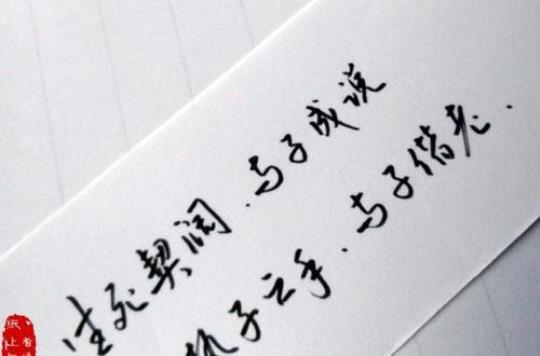 生死契阔.与子成说
执子之手.与子偕老.
纸上